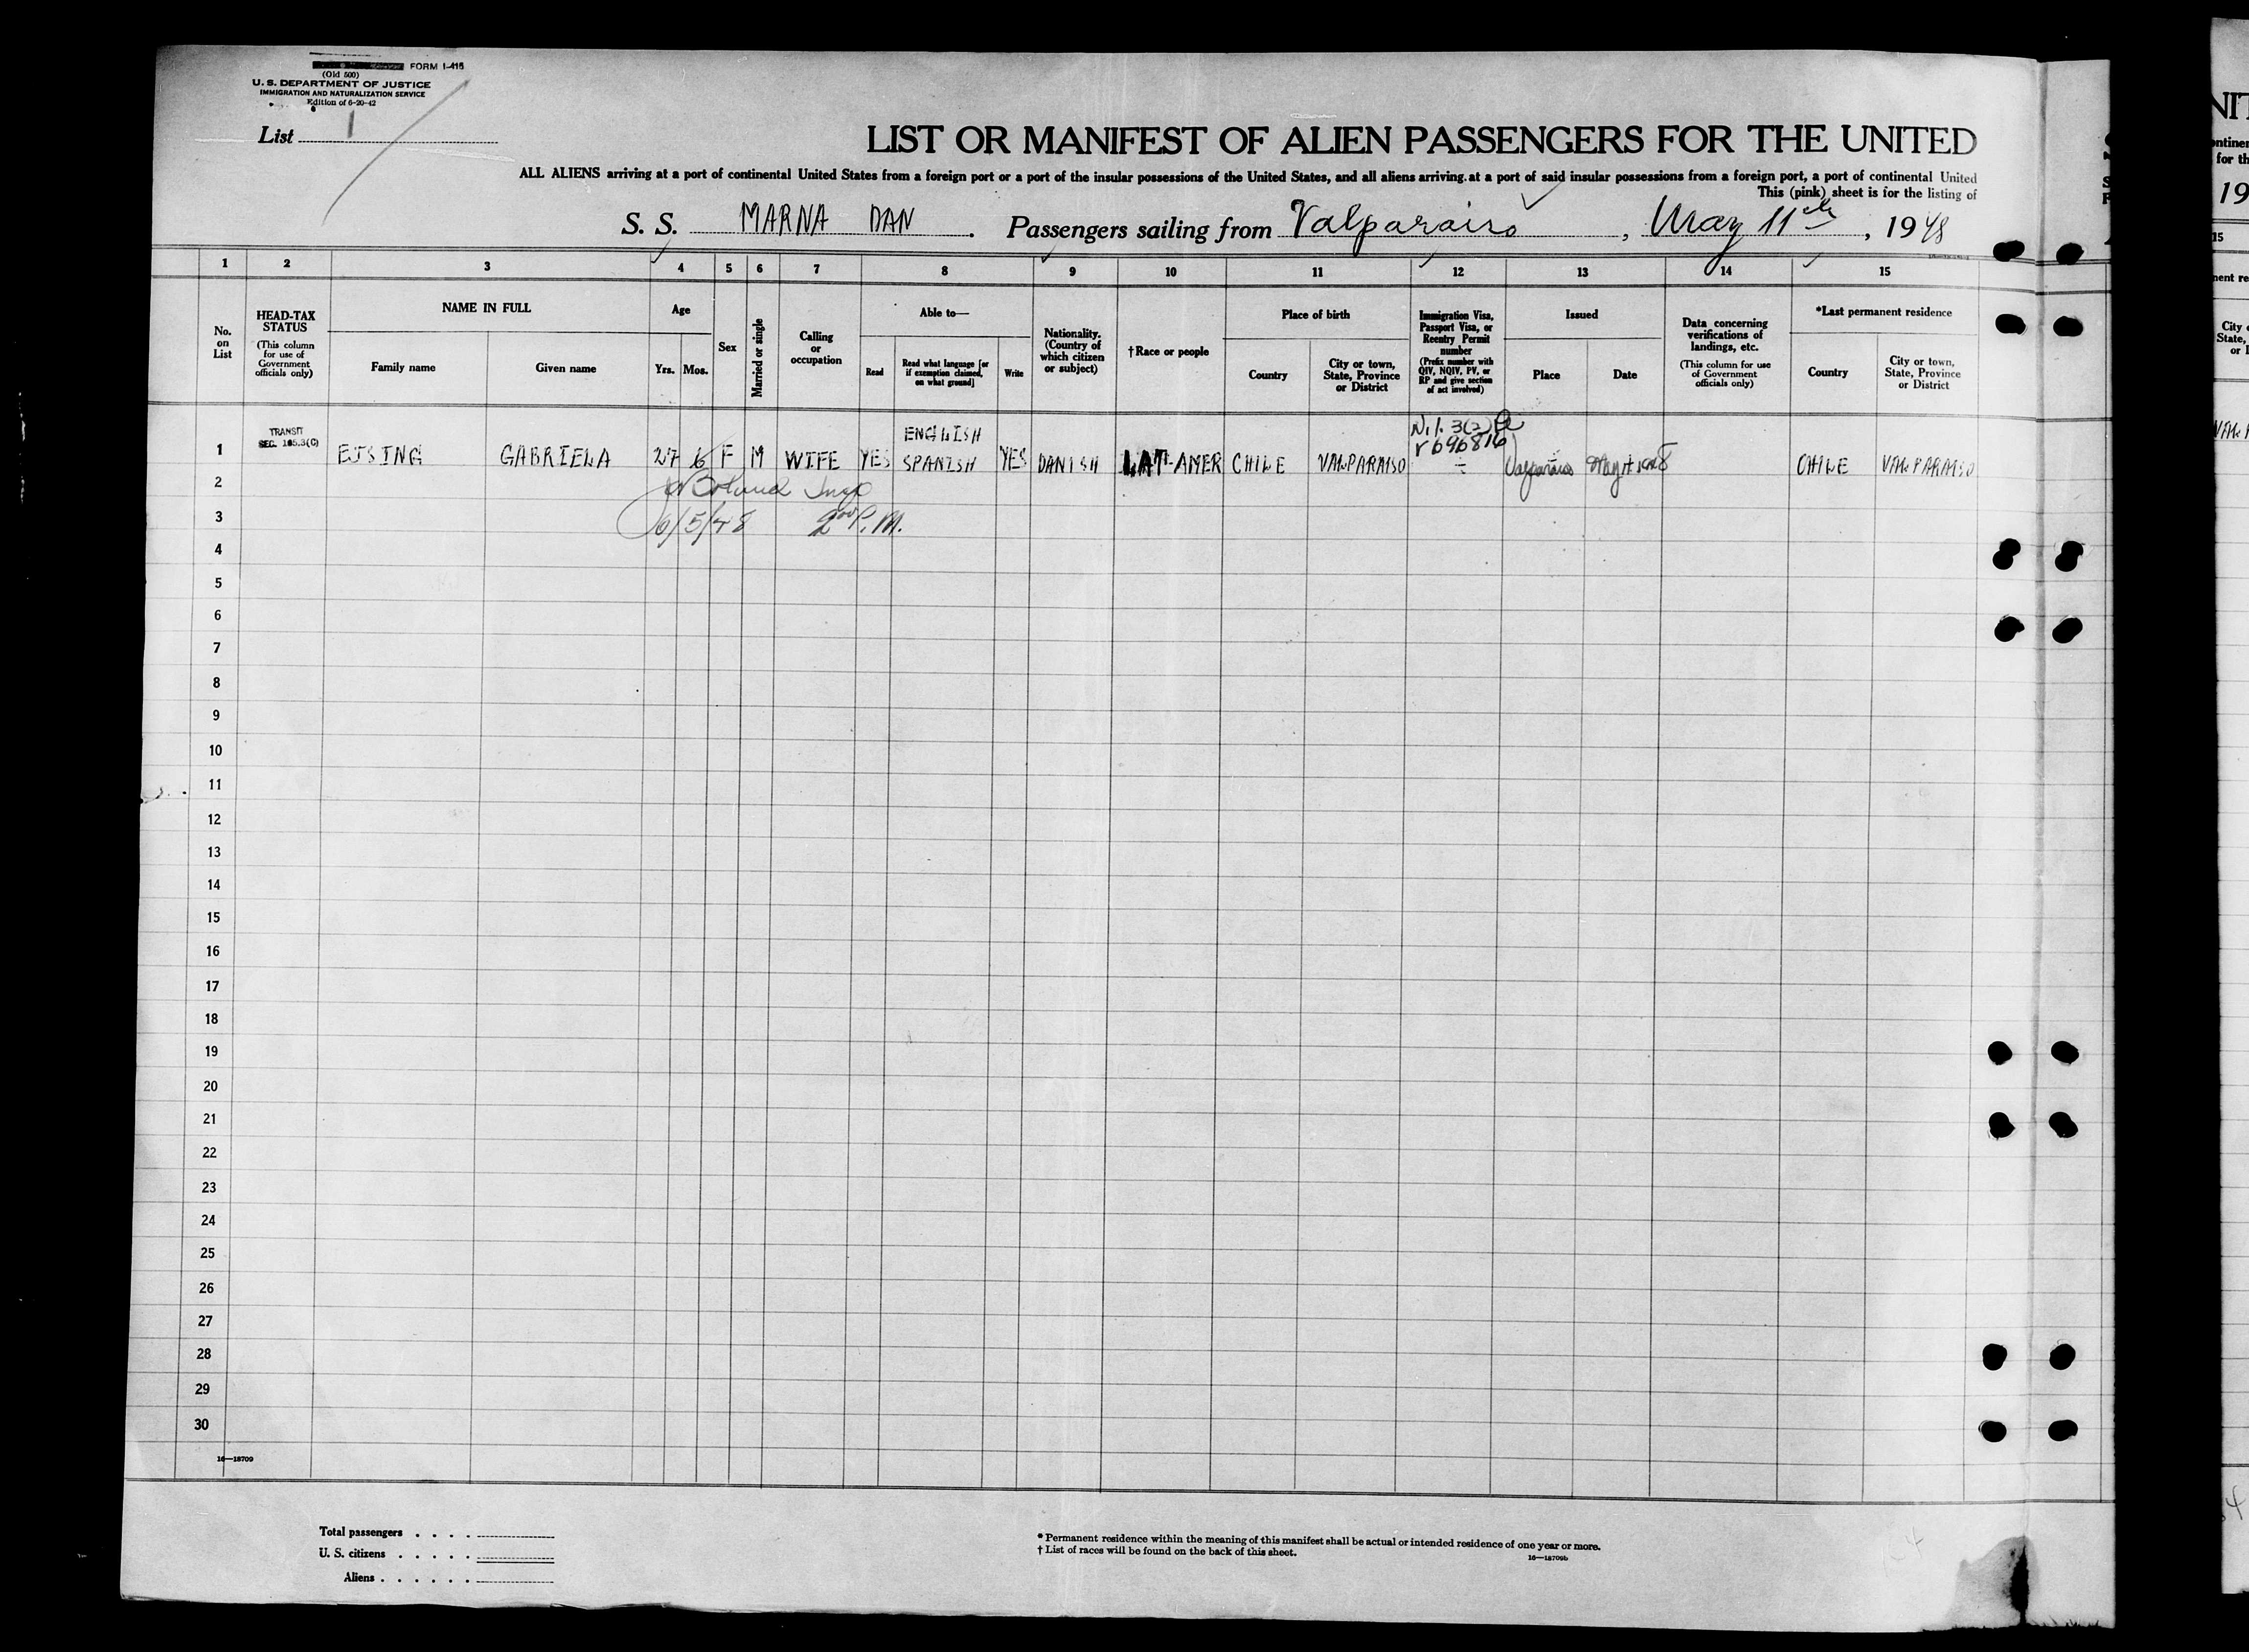 FORM I-415
(Old 500)
U. S. DEPARTMENT OF JUSTICE
IMMIGRATION AND NATURALIZATION SERVICE
Edition of 6-20-42
List 1
LIST OR MANIFEST OF ALIEN PASSENGERS FOR THE UNITED
ALL ALIENS arriving at a port of continental United States from a foreign port or a port of the insular possessions of the United States, and all aliens arriving at a port of said insular possessions from a foreign port, a port of continental United
This (pink) sheet is for the listing of
S. S. MARNA DAN . Passengers sailing from Valparaiso , May 11th , 1948
1 2 3 4 5 6 7 8 9 10 11 12 13 14 15
No. on List
HEAD-TAX STATUS
(This column for use of Government officials only)
NAME IN FULL
Family name
Given name
Age
Yrs. Mos.
Sex
Married or single
Calling or occupation
Able to—
Read
Read what language [or if exemption claimed, on what ground]
Write
Nationality. (Country of which citizen or subject)
†Race or people
Place of birth
Country
City or town, State, Province or District
Immigration Visa, Passport Visa, or Reentry Permit number
(Prefix number with QIV, NQIV, PV, or RP and give section of act involved)
Issued
Place
Date
Data concerning verifications of landings, etc.
(This column for use of Government officials only)
*Last permanent residence
Country
City or town, State, Province or District
TRANSIT
SEC. 105.3(C)
ENGLISH
3(2)
V 696816
1 EJSING GABRIELA 27 6 F M WIFE YES SPANISH YES DANISH LAT-AMER CHILE VALPARAISO Valparaiso May 1948 CHILE VALPARAISO
2
3 6/5/48 2 00 P.M.
4
5
6
7
8
9
10
11
12
13
14
15
16
17
18
19
20
21
22
23
24
25
26
27
28
29
30
16—18709
Total passengers
U. S. citizens
Aliens
* Permanent residence within the meaning of this manifest shall be actual or intended residence of one year or more.
† List of races will be found on the back of this sheet.
16—18709b